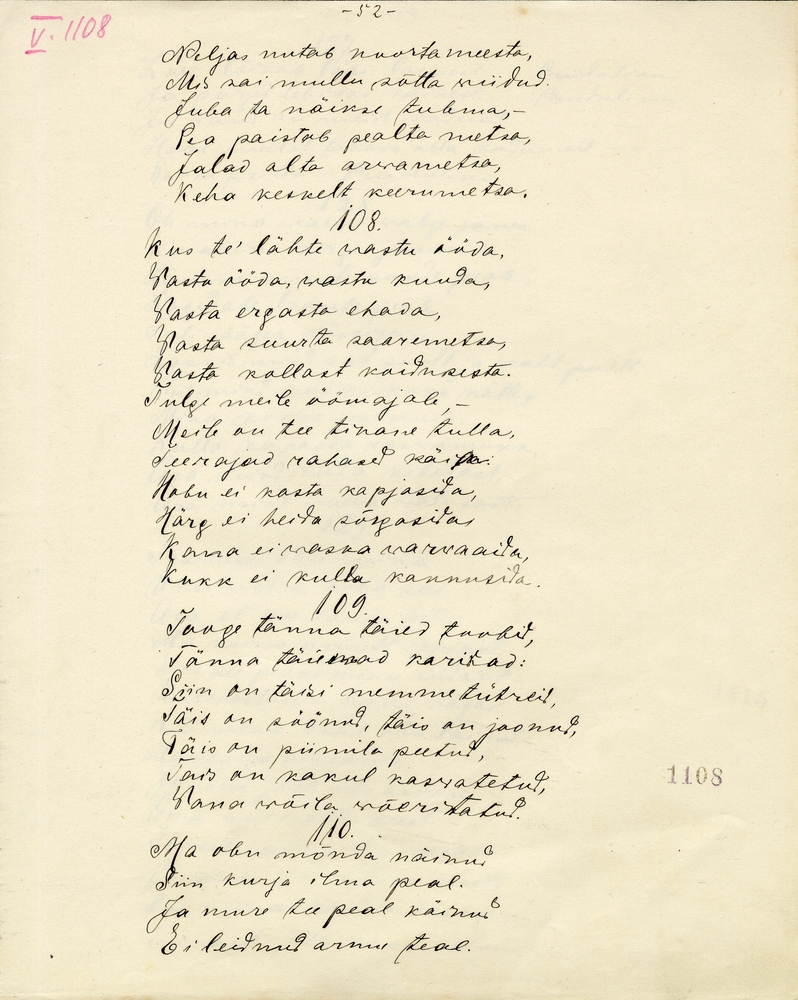 -52-
V. 1108
Neljas nutab noortameesta,
Mis sai mullu sõtta wiidud.
Juba ta näikse tulema,-
Pea paistab pealta metsa,
Jalad alta arwametsa,
Keha keskelt keerumetsa.
108.
Kus te' lähte wastu ööda,
Wasta ööda, wastu kuuda,
Wasta ergasta ehada,
Wasta suurta saaremetsa,
Wasta kollast koidukesta.
Tulge meile öömajale, -
Meile on tee tinane tulla,
Teerajad rahased käia:
Hobu ei kasta kapjasida,
Härg ei heida sõrgasida,
Kana ei waska warwaaida,
Kukk ei kulla kannusida.
109.
Tooge tänna täied toobid,
Tänna täiemad karikad:
Siin on täisi memmetütreid,
Täis on söönud, täis on joonud,
Täis on piimila peetud,
Tais on kakul kaswatetud,
Wana wõila wõeritatud.
110.
Ma olen mõnda näinud
Siin kurja ilma peal.
Ja mure tee peal käinud
Ei leidnud armu teal.
1108